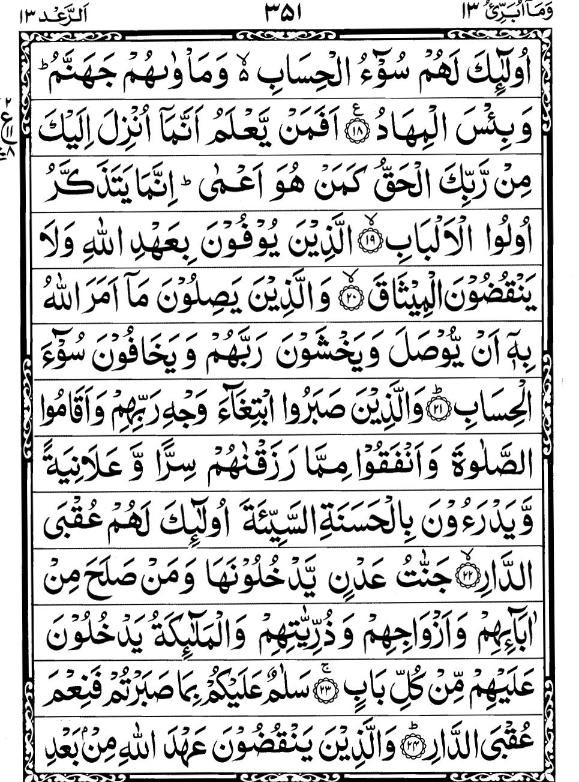 وَمَآ اُبَرِّئُ ١٣ ٣٥١ اَلرَّعْد ١٣
اُولٰٓئِكَ لَهُمْ سُوْٓءُ الْحِسَابِ ۙ۬ وَمَاْوٰىهُمْ جَهَنَّمُ ؕ
وَبِئْسَ الْمِهَادُ ﴿۱۸﴾ اَفَمَنْ يَّعْلَمُ اَنَّمَاۤ اُنْزِلَ اِلَيْكَ
مِنْ رَّبِّكَ الْحَقُّ كَمَنْ هُوَ اَعْمٰى ؕ اِنَّمَا يَتَذَكَّرُ
اُولُوا الْاَلْبَابِ ﴿۱۹﴾ الَّذِيْنَ يُوْفُوْنَ بِعَهْدِ اللّٰهِ وَلَا
يَنْقُضُوْنَ الْمِيْثَاقَ ﴿۲۰﴾ وَالَّذِيْنَ يَصِلُوْنَ مَاۤ اَمَرَ اللّٰهُ
بِهٖۤ اَنْ يُّوْصَلَ وَيَخْشَوْنَ رَبَّهُمْ وَيَخَافُوْنَ سُوْٓءَ
الْحِسَابِ ﴿۲۱﴾ وَالَّذِيْنَ صَبَرُوا ابْتِغَآءَ وَجْهِ رَبِّهِمْ وَاَقَامُوا
الصَّلٰوةَ وَاَنْفَقُوْا مِمَّا رَزَقْنٰهُمْ سِرًّا وَّعَلَانِيَةً
وَّيَدْرَءُوْنَ بِالْحَسَنَةِ السَّيِّئَةَ اُولٰٓئِكَ لَهُمْ عُقْبَى
الدَّارِ ﴿۲۲﴾ جَنّٰتُ عَدْنٍ يَّدْخُلُوْنَهَا وَمَنْ صَلَحَ مِنْ
اٰبَآئِهِمْ وَاَزْوَاجِهِمْ وَذُرِّيّٰتِهِمْ وَالْمَلٰٓئِكَةُ يَدْخُلُوْنَ
عَلَيْهِمْ مِّنْ كُلِّ بَابٍ ﴿۲۳﴾ سَلٰمٌ عَلَيْكُمْ بِمَا صَبَرْتُمْ فَنِعْمَ
عُقْبَى الدَّارِ ﴿۲۴﴾ وَالَّذِيْنَ يَنْقُضُوْنَ عَهْدَ اللّٰهِ مِنْۢ بَعْدِ